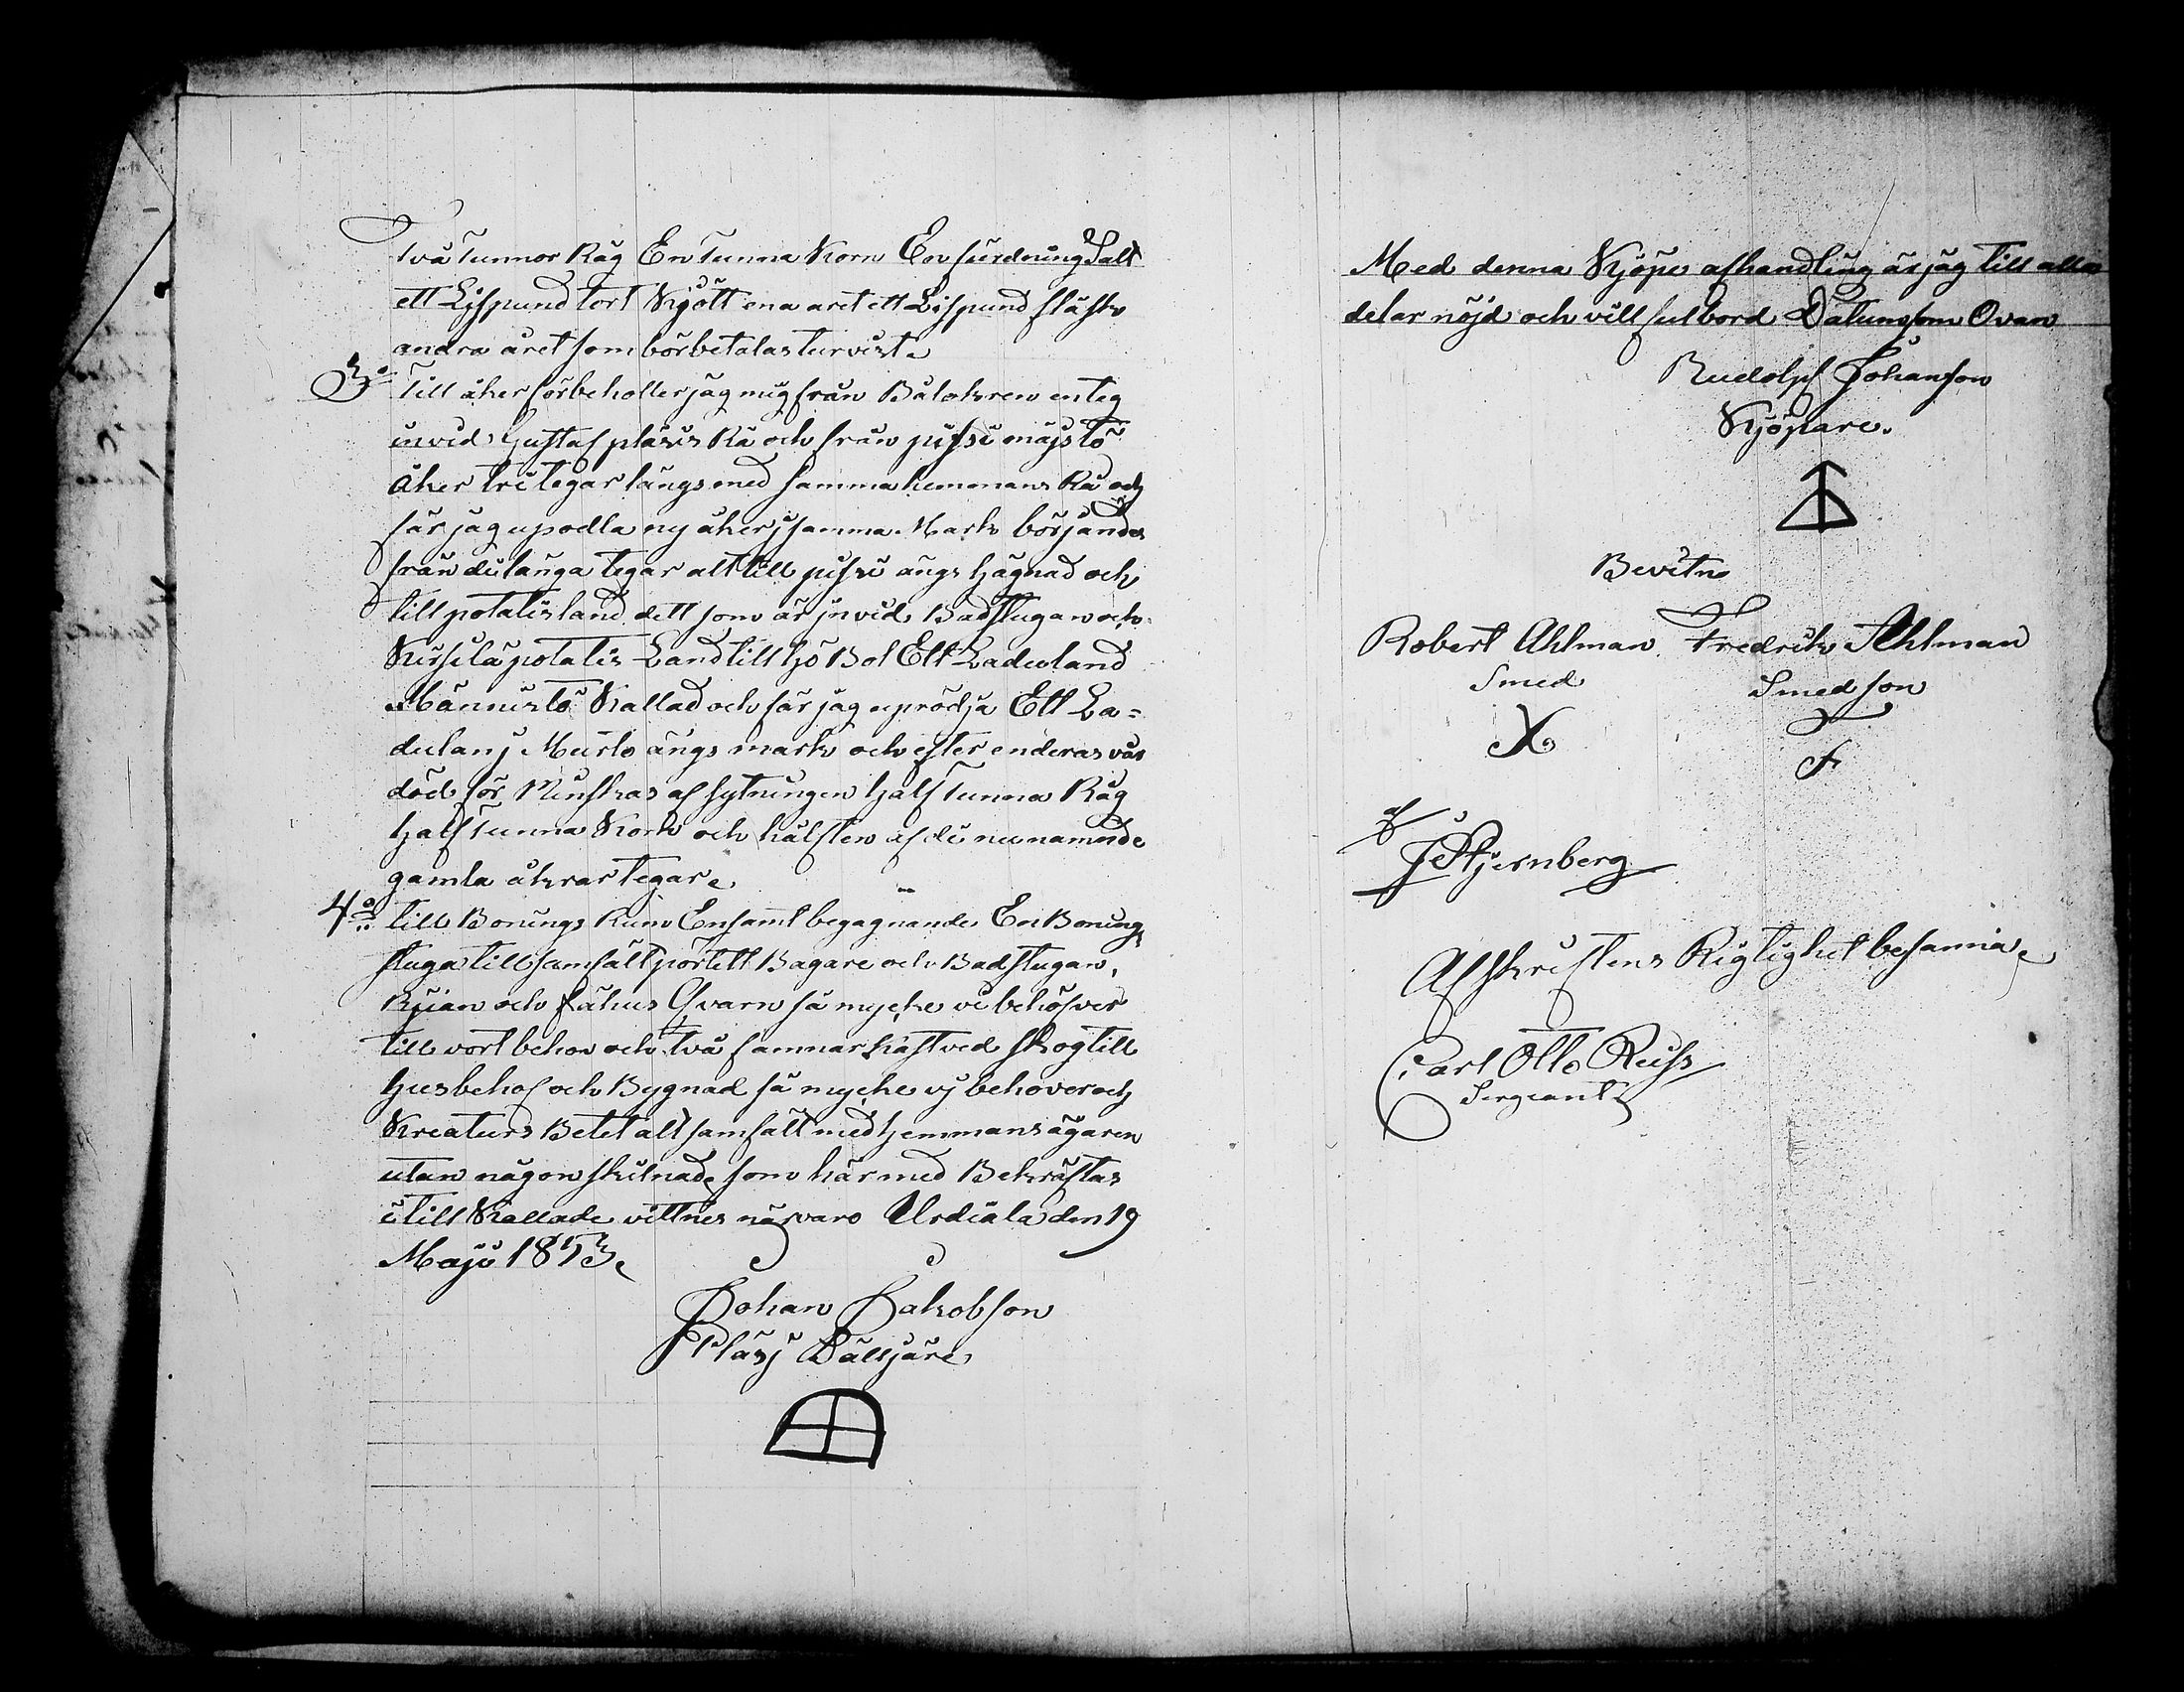 två Tunnor Råg En Tunna Korn En fierdning Salt
ett Lispund tort Kjött ena aret ett Lispund fläsk
andra året som bör betalas turvist.
3o Till åker förbeholler jag mig från Balokren en teg
invid Gustaf pläsis Rå och från
åker tre tegar längs med samma hemmans Rå och
får jag upodla ny åker j samma Mark börjande
från de långa tegar alt till ängs hägnad och
till potatisland dett som är jnvid Badstugan och
potatis Land till hö Bol Ett Laduland
Männistö Kallad och får jag uprödja Ett La=
dulanj ängs mark och efter enderas vår
död för Minskas af sytningen half Tunna Råg
half Tunna Korn och hälften af de nu namnde
gamla åkrar tegar.
4o till Bonings Rum Ensamt begagnande En Bonings
stuga till samfält pörtett Bagare och Badstugan,
Rijan och fähus Qvarn så mycke vi behöfver
till vort behov och två famnar kastved skog till
husbehof och Bygnad så mycke vj behöver och
Kreaturs Betet alt samfält med hemmansägaren
utan någon skilnad som härmed Bekräftas
i till Kallade vittnes närvaro Urdiala den 19
Maji 1853.
Johan Jakobson
Pläsj Säljare
Med denna Kjöpe afhandling är jag till alla
delar nöjd och vill fulbord Datum som Ovan
Rudolf Johanson
Kjöpare.
Bevitna
Robert Ahlman Fredrik Ahlman
Smed Smedson
X F
af
J Stjernberg
Afskriftens Rigtighet besanna
Carl Otto Reuss
Sergeant